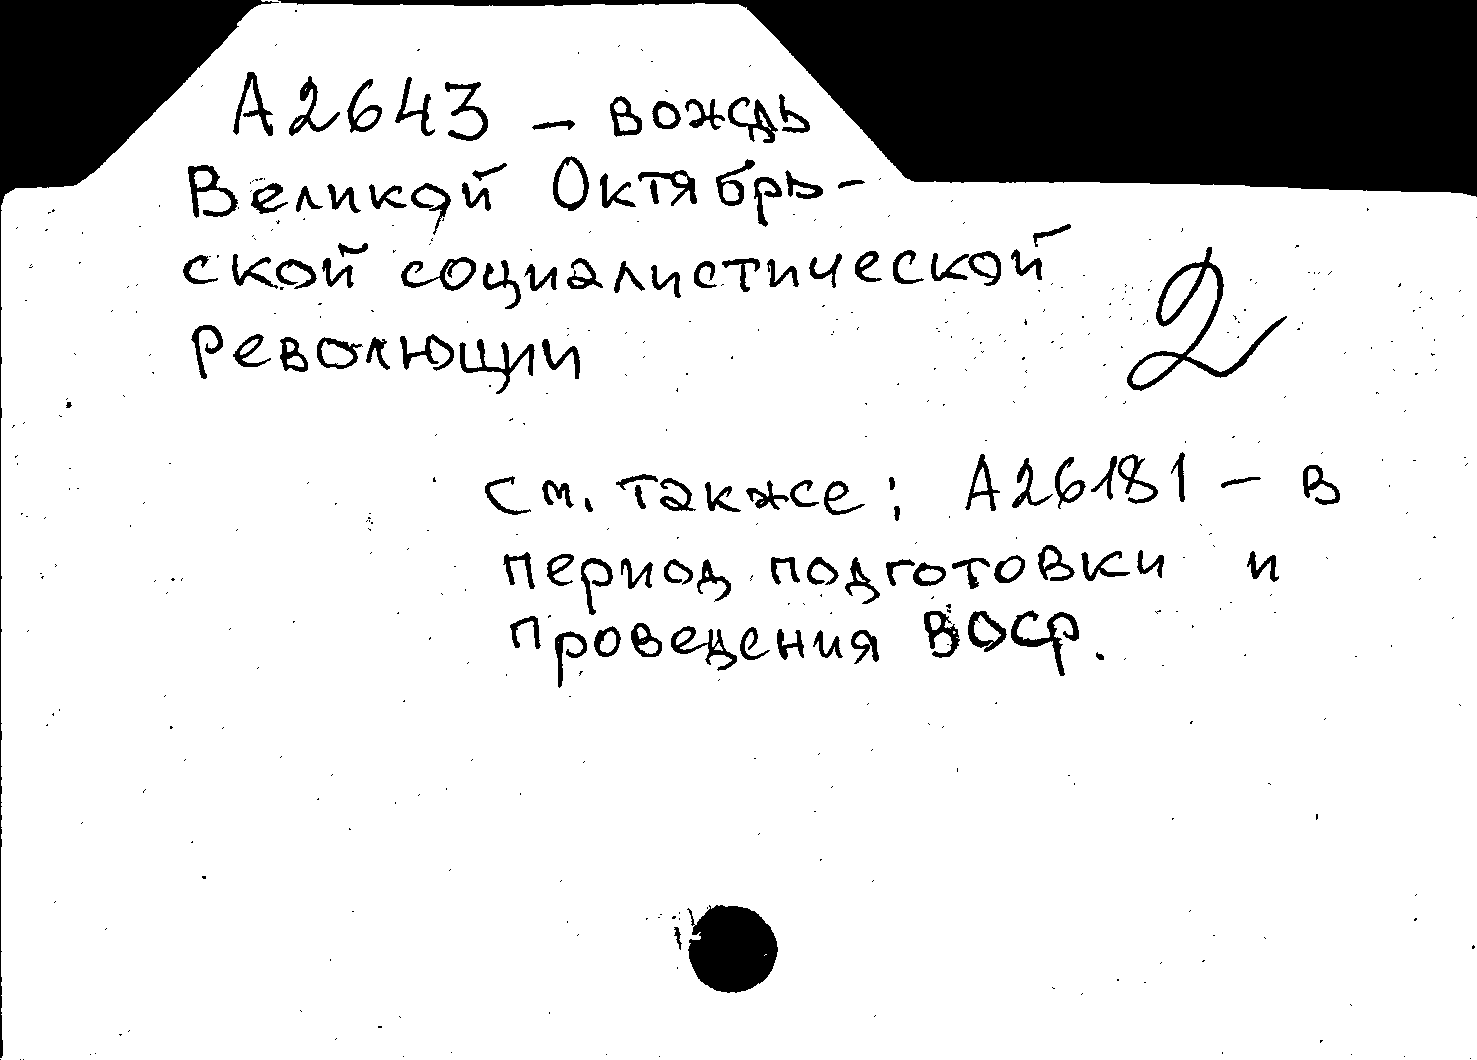 А2643 – вождь
Великой Октябрь-
ской социалистической
революции
2
см. также: А26181 – в
период подготовки и
проведения ВОСР.